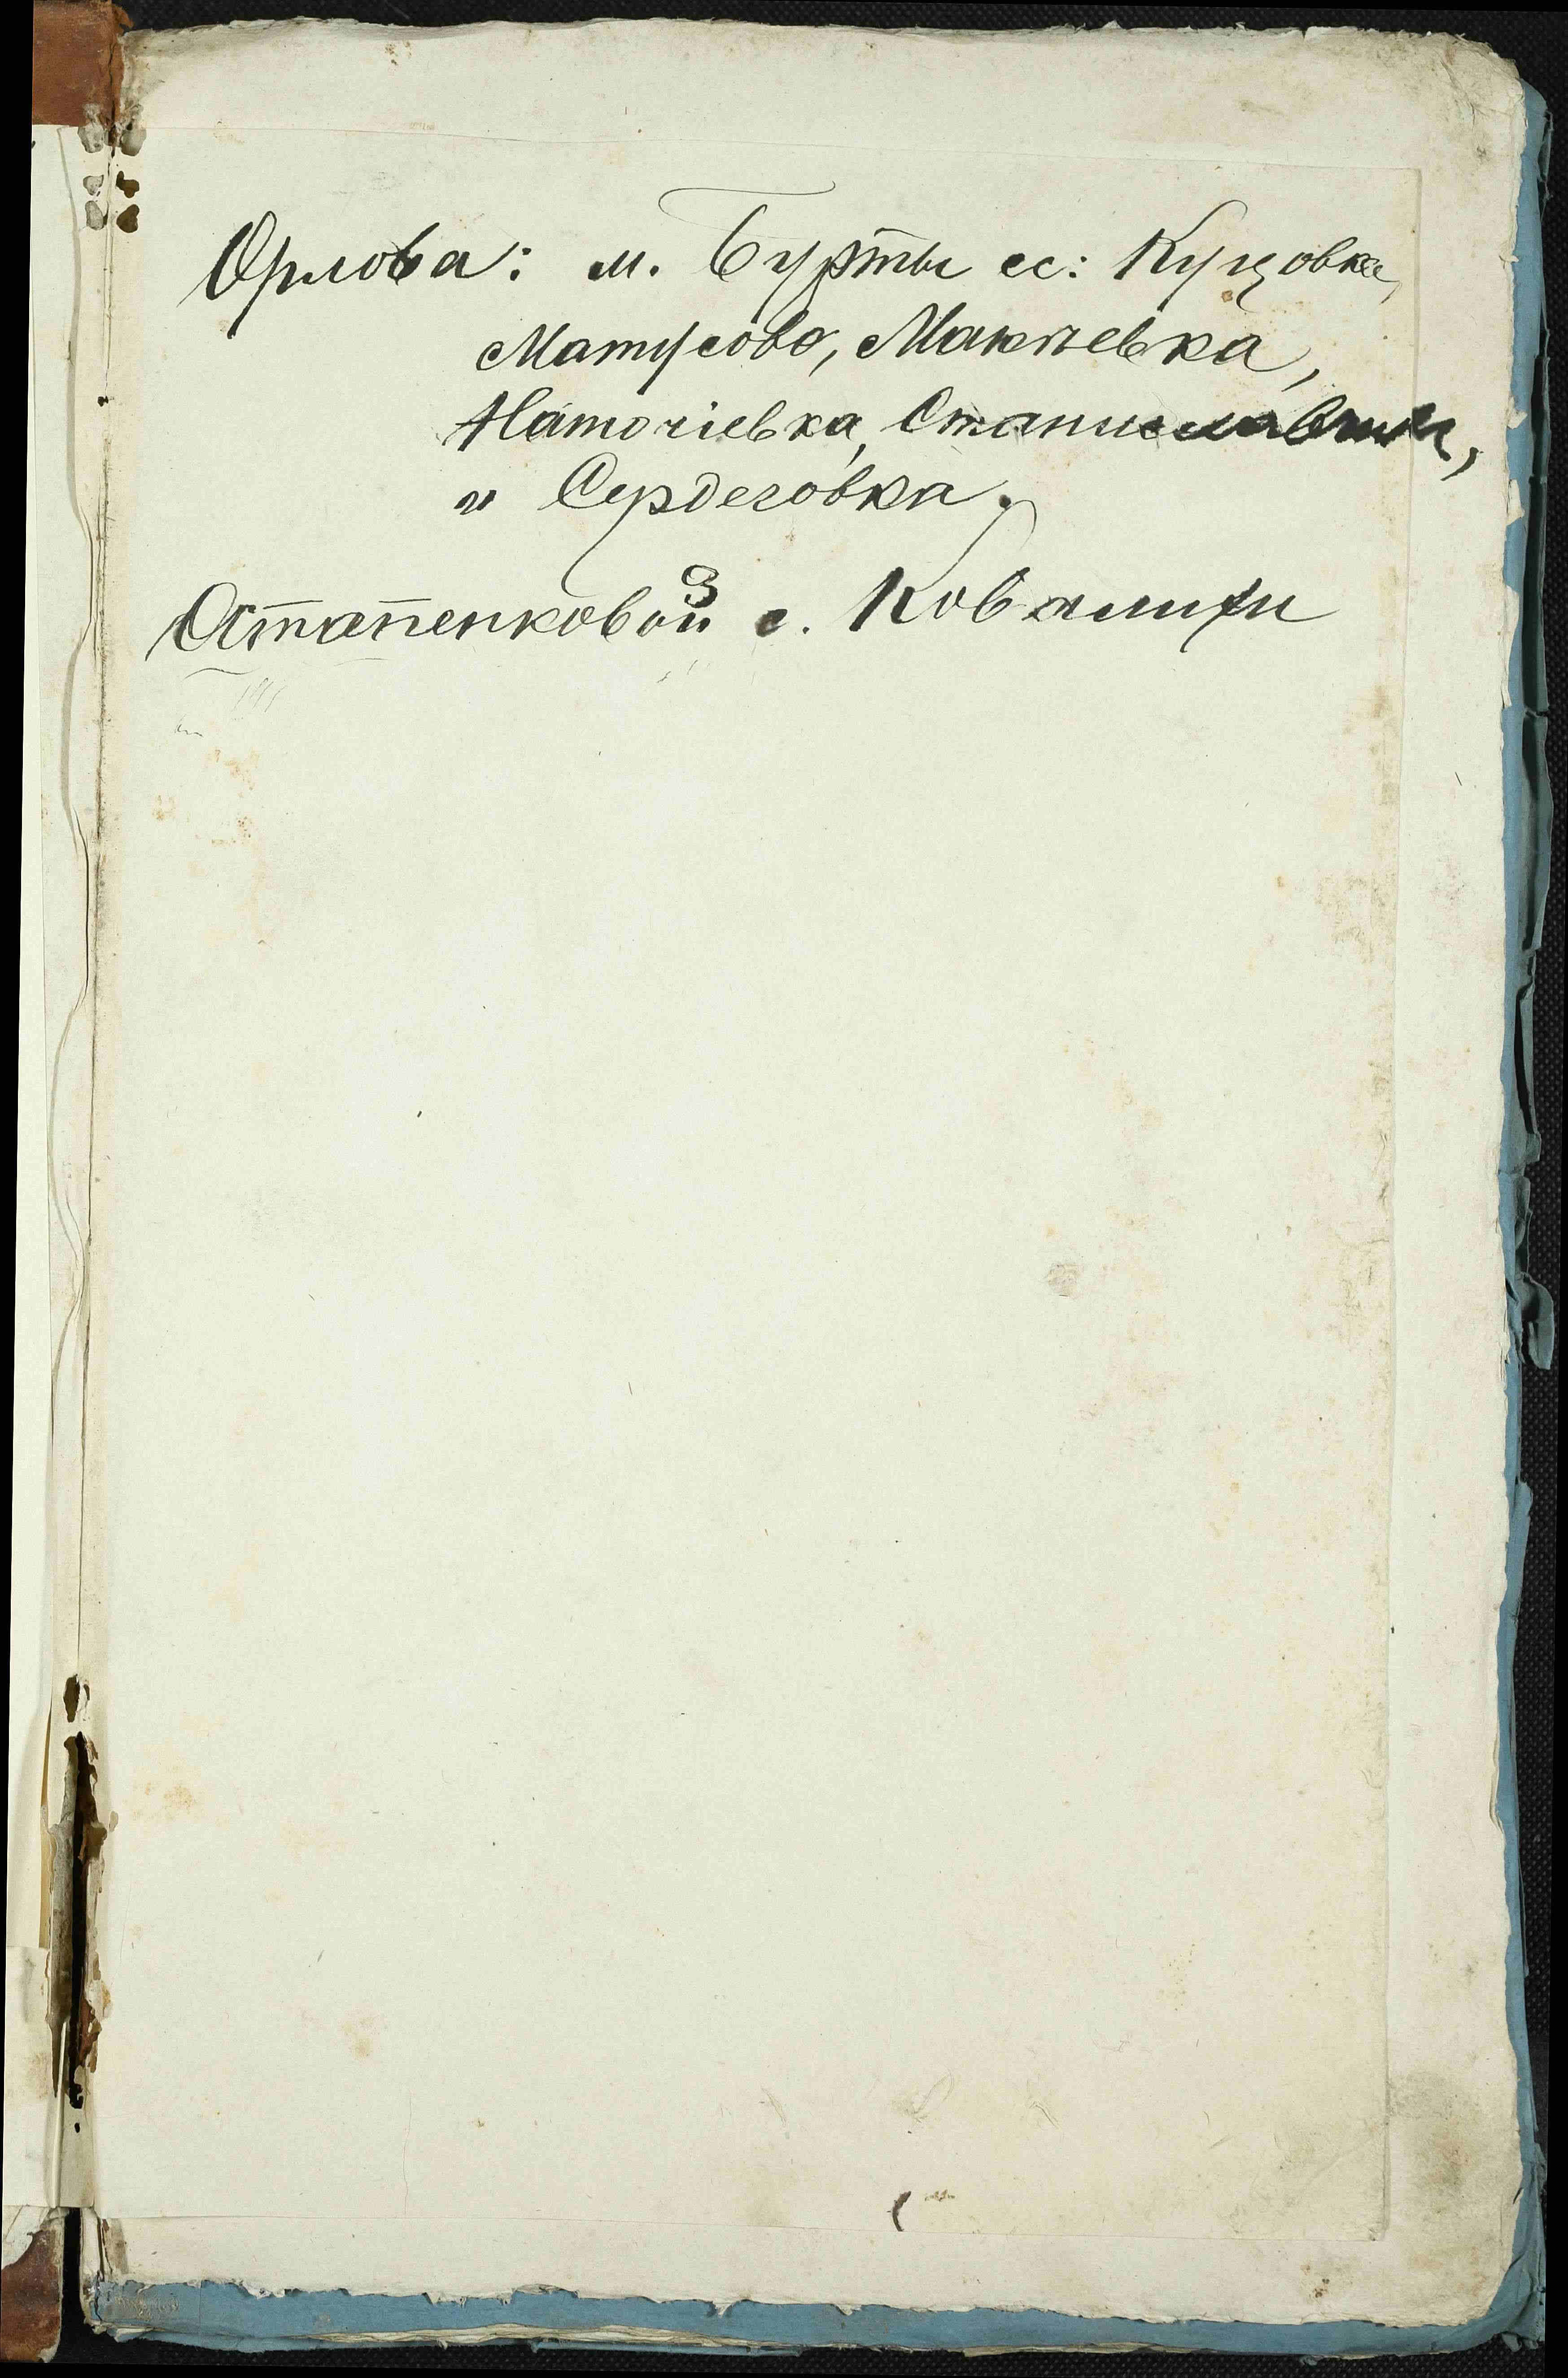 Орлова: м. Бурты сс: Куцовка,
Матусово, Макѣевка,
Наточіевка, Станиславчик,
и Сердеговка.
Остапенковой с. Ковалихи